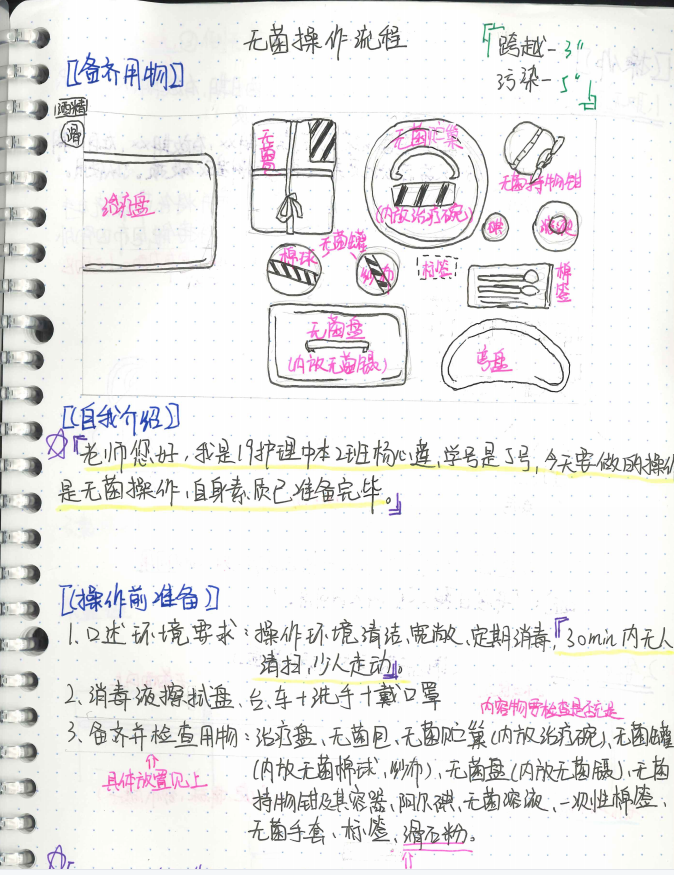 无菌操作流程
『跨越-3"
污染-5"』
【备齐用物】
酒精
滑
治疗盘
无菌
无菌贮巢
(内放治疗碗)
无菌持物钳
碘
无菌罐
棉球
纱布
标签
棉签
无菌盘
(内放无菌镊)
弯盘
【自我介绍】
☆『老师您好,我是19护理中本2班杨心莲,学号是5号,今天要做的操作
是无菌操作,自身素质已准备完毕。』
【操作前准备】
1.口述环境要求:操作环境清洁、宽敞、定期消毒,『30min内无人
清扫,少人走动。』
2.消毒液擦拭盘、台、车+洗手+戴口罩
内容物要检查是否充足
3.备齐并检查用物:治疗盘、无菌包、无菌贮巢(内放治疗碗)、无菌罐
⇑
(内放无菌棉球、纱布)、无菌盘(内放无菌镊)、无菌
具体放置见上
持物钳及其容器、阿尔碘、无菌溶液、一次性棉签、
无菌手套、标签、滑石粉。
⇑